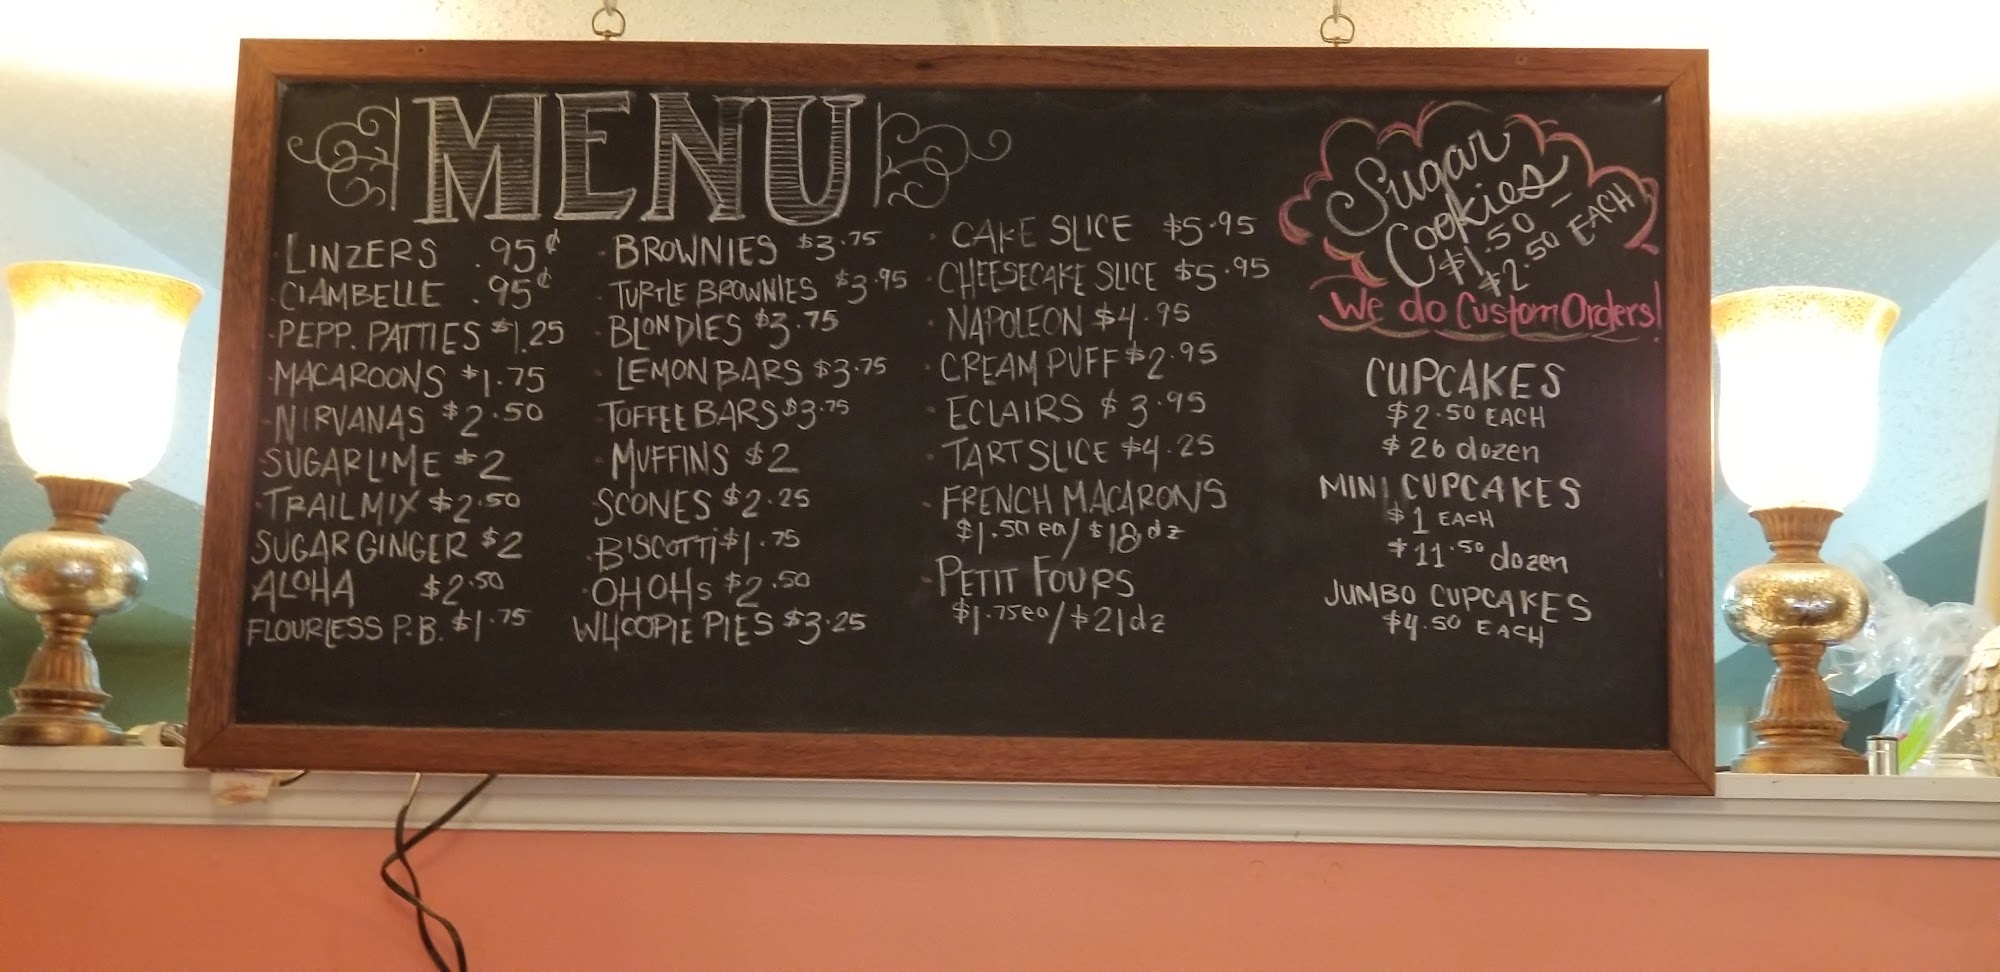 MENU
LINZERS .95¢
CIAMBELLE .95¢
PEPP. PATTIES $1.25
MACAROONS $1.75
NIRVANAS $2.50
SUGAR LIME $2
TRAIL MIX $2.50
SUGAR GINGER $2
ALOHA $2.50
FLOURLESS P.B. $1.75
BROWNIES $3.75
TURTLE BROWNIES $3.95
BLONDIES $3.75
LEMON BARS $3.75
TOFFEE BARS $3.75
MUFFINS $2
SCONES $2.25
BISCOTTI $1.75
OHOHs $2.50
WHOOPIE PIES $3.25
CAKE SLICE $5.95
CHEESECAKE SLICE $5.95
NAPOLEON $4.95
CREAM PUFF $2.95
ECLAIRS $3.95
TART SLICE $4.25
FRENCH MACARONS
$1.50 ea/$18 dz
PETIT FOURS
$1.75 ea/$21 dz
Sugar
Cookies
$1.50 –
$2.50 EACH
We do Custom Orders!
CUPCAKES
$2.50 EACH
$26 dozen
MINI CUPCAKES
$1 EACH
$11.50 dozen
JUMBO CUPCAKES
$4.50 EACH